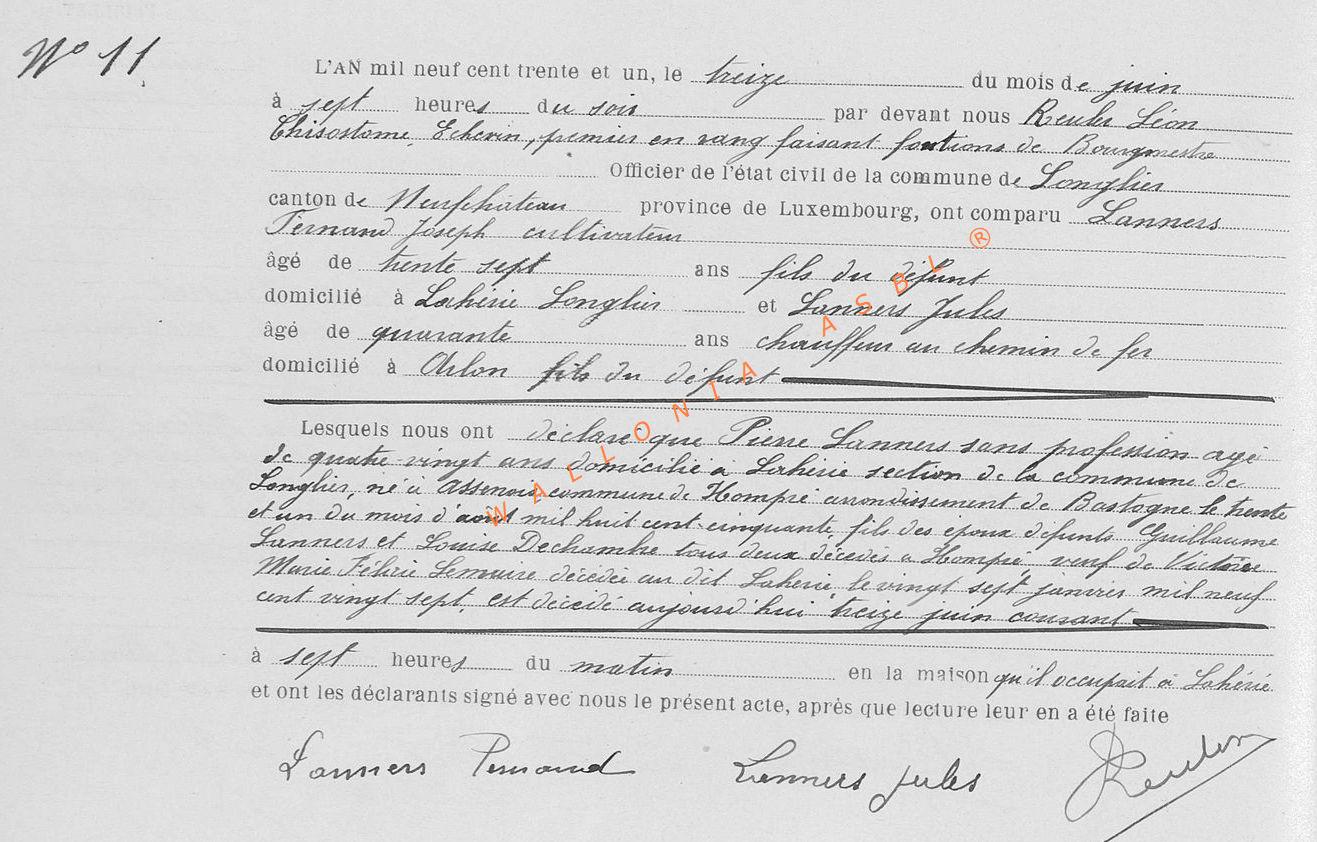 N° 11
L'AN mil neuf cent trente et un, le treize du mois de juin
à sept heures du soir par devant nous Reuler Léon
Chisostome, Echevin, premier en rang faisant fontions de Bourgmestre
Officier de l'état civil de la commune de Longlier
canton de Neufchateau province de Luxembourg, ont comparu Lanners
Fernand Joseph cultivateur
âgé de trente sept ans fils du défunt
domicilié à Lahérie Longlier et Lanners Jules
âgé de quarante ans chauffeur au chemin de fer
domicilié à Arlon fils du défunt
Lesquels nous ont déclaré que Pierre Lanners sans profession agé
de quatre vingt ans domicilié à Laherie section de la commune de
Longlier, né à Assenois commune de Hompré arrondissement de Bastogne le trente
et un du mois d'août mil huit cent cinquante, fils des epoux défunts Guillaume
Lanners et Louise Dechambre tous deux décédés à Hompré, veuf de Victoire
Marie Félicie Lemaire décédée au dit Laherie, le vingt sept janvier mil neuf
cent vingt sept, est décédé aujourd'hui treize juin courant
à sept heures du matin en la maison qu'il occupait à Lahérie
et ont les déclarants signé avec nous le présent acte, après que lecture leur en a été faite
Lanners Fernand Lanners Jules Reuler
WALLONIA ASBL ®